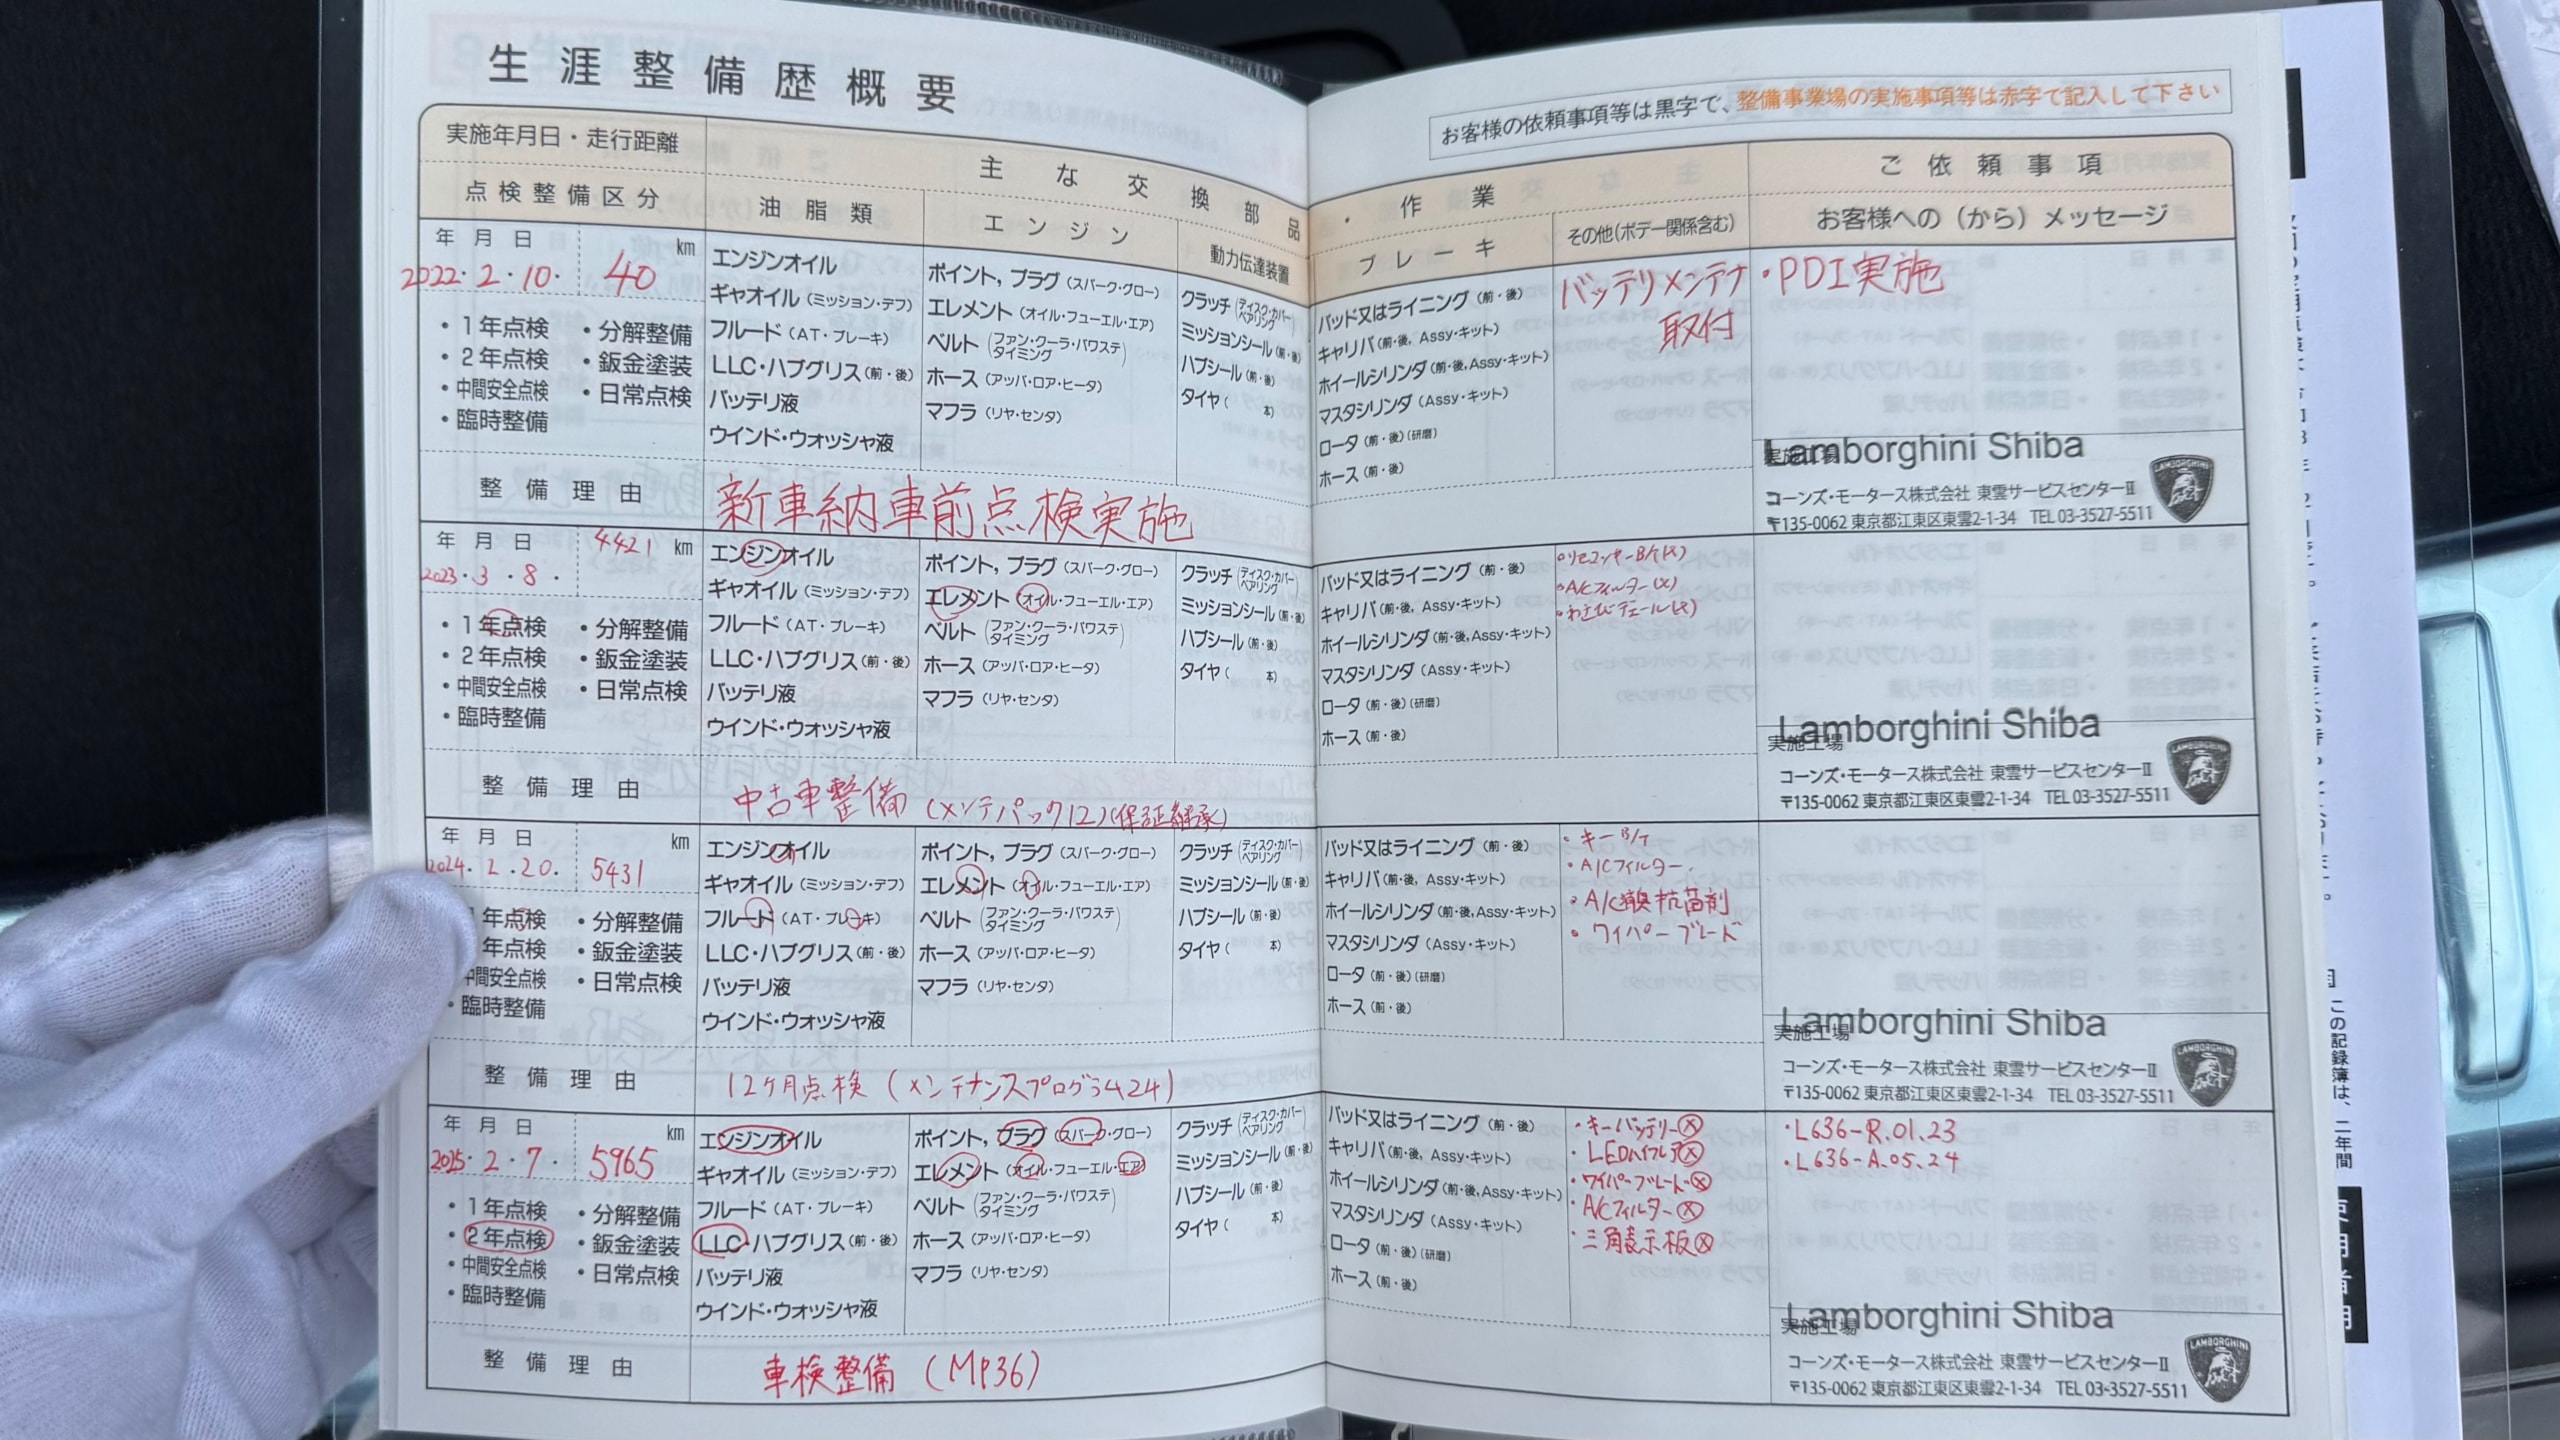 生涯整備歴概要
お客様の依頼事項等は黒字で、整備事業場の実施事項等は赤字で記入して下さい
実施年月日・走行距離
点検整備区分
主な交換部品・作業
油脂類
エンジン
動力伝達装置
ブレーキ
その他(ボデー関係含む)
ご依頼事項
お客様への(から)メッセージ
年 月 日
2022・2・10・
40 km
・1年点検 ・分解整備
・2年点検 ・鈑金塗装
・中間安全点検 ・日常点検
・臨時整備
エンジンオイル
ギヤオイル(ミッション・デフ)
フルード(AT・ブレーキ)
LLC・ハブグリス(前・後)
バッテリ液
ウインド・ウォッシャ液
ポイント,プラグ(スパーク・グロー)
エレメント(オイル・フューエル・エア)
ベルト(ファン・クーラ・パワステ タイミング)
ホース(アッパ・ロア・ヒータ)
マフラ(リヤ・センタ)
クラッチ(ディスク・カバー ベアリング)
ミッションシール(前・後)
ハブシール(前・後)
タイヤ( 本)
パッド又はライニング(前・後)
キャリパ(前・後, Assy・キット)
ホイールシリンダ(前・後,Assy・キット)
マスタシリンダ(Assy・キット)
ロータ(前・後)(研磨)
ホース(前・後)
バッテリメンテナ
取付
・PDI実施
Lamborghini Shiba
実施工場
コーンズ・モータース株式会社 東雲サービスセンターII
〒135-0062 東京都江東区東雲2-1-34 TEL 03-3527-5511
LAMBORGHINI
整備理由
新車納車前点検実施
年 月 日
2023・3・8・
4421 km
・1年点検 ・分解整備
・2年点検 ・鈑金塗装
・中間安全点検 ・日常点検
・臨時整備
エンジンオイル
ギヤオイル(ミッション・デフ)
フルード(AT・ブレーキ)
LLC・ハブグリス(前・後)
バッテリ液
ウインド・ウォッシャ液
ポイント,プラグ(スパーク・グロー)
エレメント(オイル・フューエル・エア)
ベルト(ファン・クーラ・パワステ タイミング)
ホース(アッパ・ロア・ヒータ)
マフラ(リヤ・センタ)
クラッチ(ディスク・カバー ベアリング)
ミッションシール(前・後)
ハブシール(前・後)
タイヤ( 本)
パッド又はライニング(前・後)
キャリパ(前・後, Assy・キット)
ホイールシリンダ(前・後,Assy・キット)
マスタシリンダ(Assy・キット)
ロータ(前・後)(研磨)
ホース(前・後)
・A/Cフィルター(x)
Lamborghini Shiba
実施工場
コーンズ・モータース株式会社 東雲サービスセンターII
〒135-0062 東京都江東区東雲2-1-34 TEL 03-3527-5511
LAMBORGHINI
整備理由
中古車整備(メンテパック12)(保証継承)
年 月 日
2024・2・20・
5431 km
1年点検 ・分解整備
年点検 ・鈑金塗装
中間安全点検 ・日常点検
・臨時整備
エンジンオイル
ギヤオイル(ミッション・デフ)
フルード(AT・ブレーキ)
LLC・ハブグリス(前・後)
バッテリ液
ウインド・ウォッシャ液
ポイント,プラグ(スパーク・グロー)
エレメント(オイル・フューエル・エア)
ベルト(ファン・クーラ・パワステ タイミング)
ホース(アッパ・ロア・ヒータ)
マフラ(リヤ・センタ)
クラッチ(ディスク・カバー ベアリング)
ミッションシール(前・後)
ハブシール(前・後)
タイヤ( 本)
パッド又はライニング(前・後)
キャリパ(前・後, Assy・キット)
ホイールシリンダ(前・後,Assy・キット)
マスタシリンダ(Assy・キット)
ロータ(前・後)(研磨)
ホース(前・後)
・キーB/T
・A/Cフィルター
・A/C 抗菌剤
・ワイパーブレード
Lamborghini Shiba
実施工場
コーンズ・モータース株式会社 東雲サービスセンターII
〒135-0062 東京都江東区東雲2-1-34 TEL 03-3527-5511
LAMBORGHINI
整備理由
12ヶ月点検(メンテナンスプログラム24)
年 月 日
2025・2・7・
5965 km
・1年点検 ・分解整備
・2年点検 ・鈑金塗装
・中間安全点検 ・日常点検
・臨時整備
エンジンオイル
ギヤオイル(ミッション・デフ)
フルード(AT・ブレーキ)
LLC・ハブグリス(前・後)
バッテリ液
ウインド・ウォッシャ液
ポイント,プラグ(スパーク・グロー)
エレメント(オイル・フューエル・エア)
ベルト(ファン・クーラ・パワステ タイミング)
ホース(アッパ・ロア・ヒータ)
マフラ(リヤ・センタ)
クラッチ(ディスク・カバー ベアリング)
ミッションシール(前・後)
ハブシール(前・後)
タイヤ( 本)
パッド又はライニング(前・後)
キャリパ(前・後, Assy・キット)
ホイールシリンダ(前・後,Assy・キット)
マスタシリンダ(Assy・キット)
ロータ(前・後)(研磨)
ホース(前・後)
・キーバッテリーⓧ
・LEDハイフレアⓧ
・ワイパーブレードⓧ
・A/Cフィルターⓧ
・三角表示板ⓧ
・L636-R.01.23
・L636-A.05.24
Lamborghini Shiba
実施工場
コーンズ・モータース株式会社 東雲サービスセンターII
〒135-0062 東京都江東区東雲2-1-34 TEL 03-3527-5511
LAMBORGHINI
整備理由
車検整備(MP36)
この記録簿は、二年間
使用者用